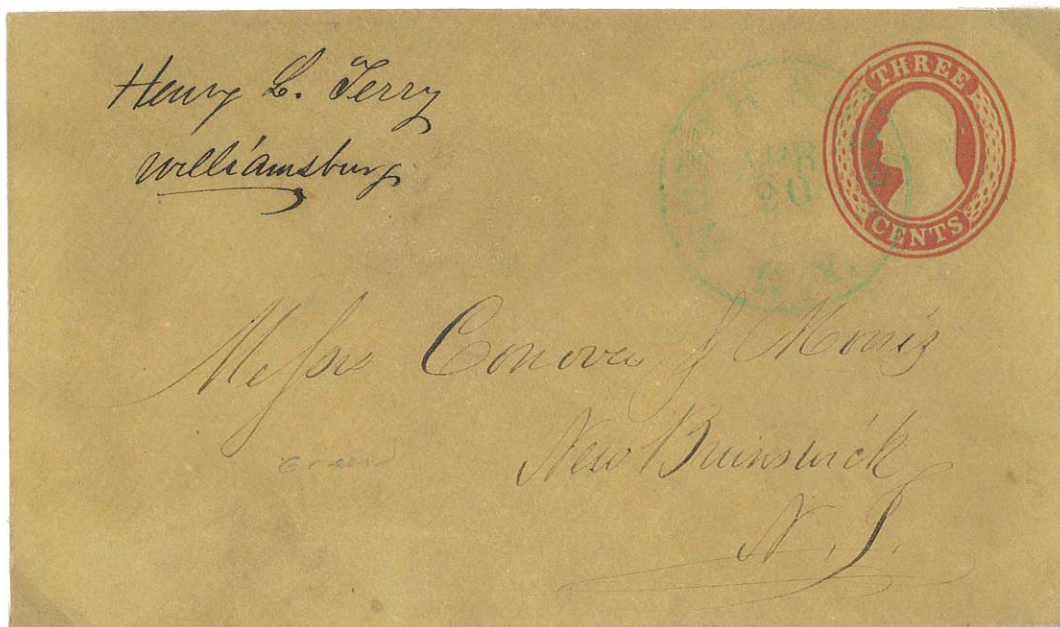 Henry L. Terry
Williamsburg
THREE
CENTS
APR
30
N.Y.
Messrs Conover & Morris
New Brunswick
N. J.
Green